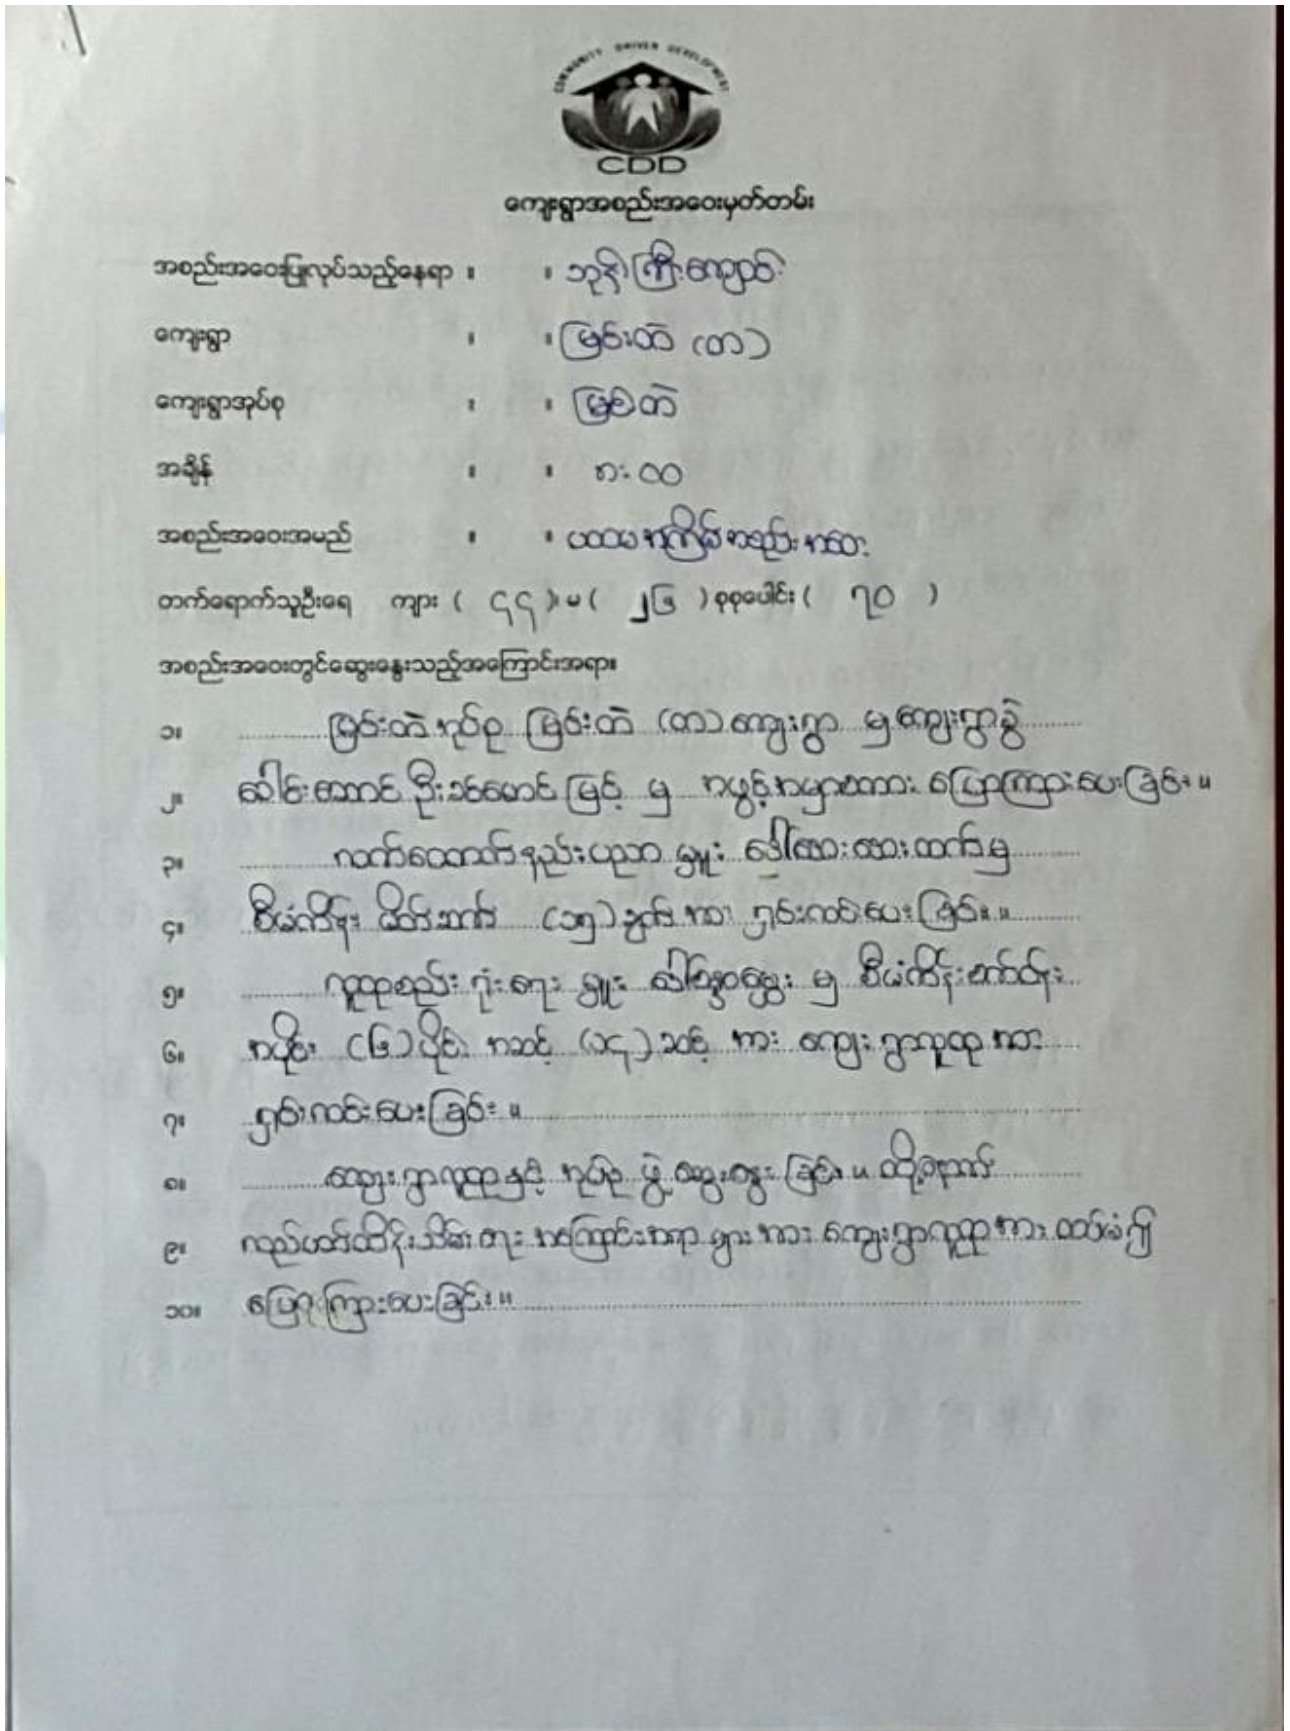 COMMUNITY DRIVEN DEVELOPMENT
CDD
ကျေးရွာအစည်းအဝေးမှတ်တမ်း
အစည်းအဝေးပြုလုပ်သည့်နေရာ ။ ။ ဘုန်းကြီးကျောင်း
ကျေးရွာ ။ ။ မြင်းတဲ (တ)
ကျေးရွာအုပ်စု ။ ။ မြင်းတဲ
အချိန် ။ ။ ၈:၀၀
အစည်းအဝေးအမည် ။ ။ ပထမအကြိမ်အစည်းအဝေး
တက်ရောက်သူဦးရေ ကျား ( ၄၄ ) မ ( ၂၆ ) စုစုပေါင်း ( ၇၀ )
အစည်းအဝေးတွင်ဆွေးနွေးသည့်အကြောင်းအရာ။
၁။ မြင်းတဲအုပ်စု မြင်းတဲ (တ) ကျေးရွာ မှ ကျေးရွာခွဲ
၂။ ခေါင်းဆောင် ဦးခင်မောင်မြင့် မှ အဖွင့်အမှာစကား ပြောကြားပေးခြင်း။
၃။ လက်ထောက်နည်းပညာမှူး ဒေါ်ထားထားထက်မှ
၄။ စီမံကိန်း မိတ်ဆက် (၁၅) ချက်အား ရှင်းလင်းပေးခြင်း။
၅။ လူထုစည်းရုံးရေးမှူး မှ စီမံကိန်းစက်ဝန်း
၆။ အပိုင်း (၆) ပိုင်း အဆင့် (၁၄) ဆင့် အား ကျေးရွာလူထုအား
၇။ ရှင်းလင်းပေးခြင်း။
၈။ ကျေးရွာလူထုနှင့် အုပ်စုဖွဲ့ ဆွေးနွေးခြင်း။ ထို့နောက်
၉။ လည်ပတ်ထိန်းသိမ်းရေး အကြောင်းအရာများအား ကျေးရွာလူထုအား ထပ်မံ၍
၁၀။ ပြောကြားပေးခြင်း။